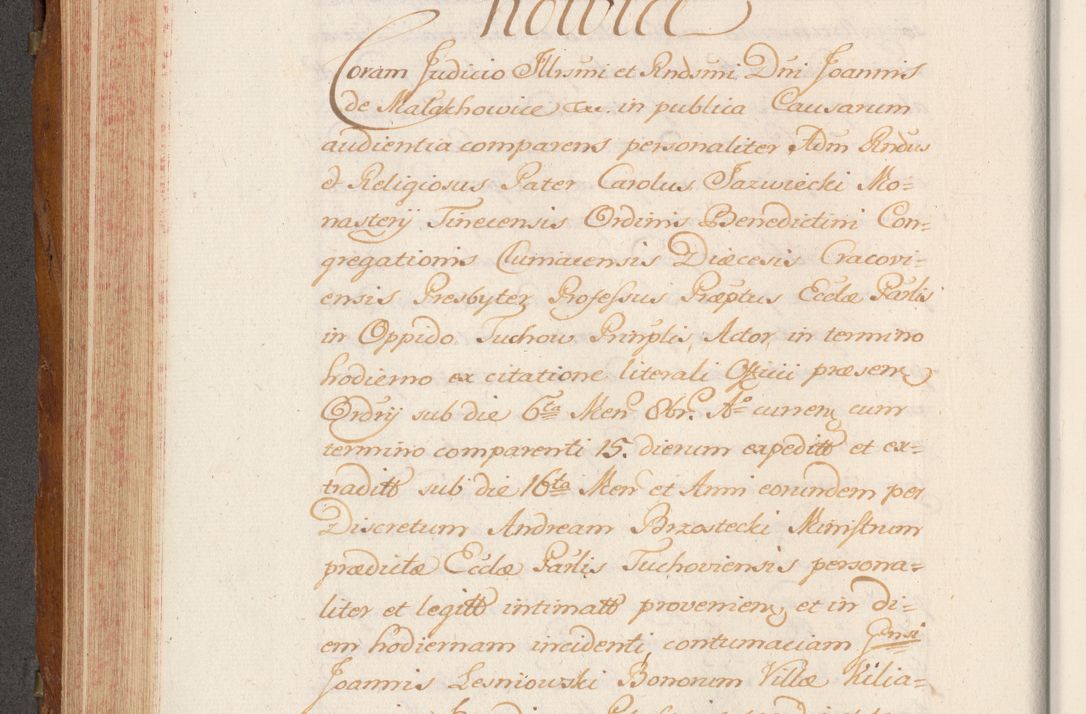 howice
Coram Judicio Illrsmi et Rndsmi Dni Joannis
de Małachowice &c. in publica Causarum
audientia comparens personaliter Adm Rndus
& Religiosus Pater Carolus Jazwiecki Mo=
nasterij Tinecensis Ordinis Benedictini Con=
gregationis Cluniacensis Diæcesis Cracovi=
ensis Presbyter Professus Præptus Ecclæ Parlis
in Oppido Tuchow Prinplis Actor, in termino
hodierno ex citatione literali Officii præsens
Ordrij sub die 6ta Men 8br. Ao curren cum
termino comparenti 15. dierum expeditt et ex=
traditt sub die 16ta Men et Anni eorundem per
Discretum Andream Brzostecki Ministrum
prædictæ Ecclæ Parlis Tuchoviensis persona=
liter et legitt intimatt provenien, et in di=
em hodiernam incidenti, contumaciam Gnsi
Joannis Lesniowski Bonorum Villæ Kilia=